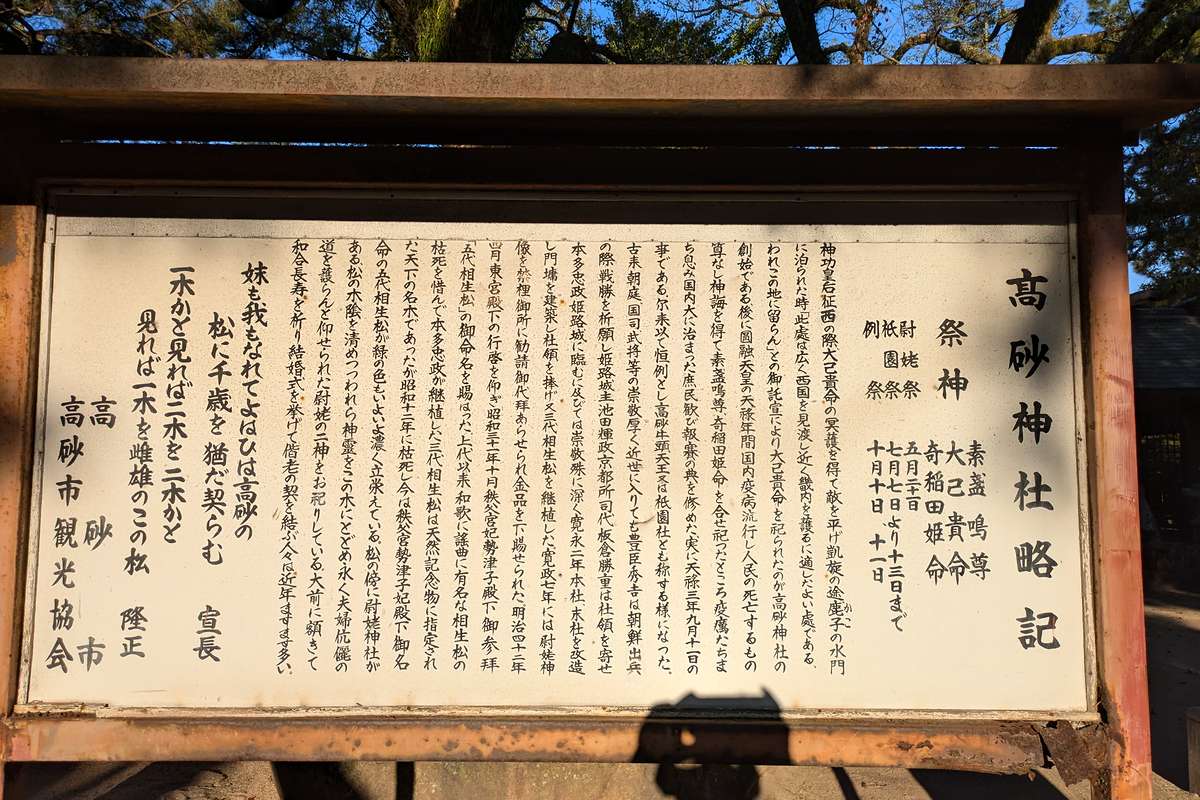 高砂神社略記
祭神
素盞嗚尊
大己貴命
奇稲田姫命
尉姥祭 五月二十一日
祇園祭 七月七日より十三日まで
例祭 十月十日、十一日
神功皇后征西の際大己貴命の冥護を得て敵を平げ凱旋の途鹿子の水門
かこ
に泊られた時「此處は広く西国を見渡し近く畿内を護るに適したよい處である、
われこの地に留らん」との御託宣により大己貴命を祀られたのが高砂神社の
創始である後に圓融天皇の天禄年間国内疫病流行し人民の死亡するもの
算なし神誨を得て素盞嗚尊、奇稲田姫命を合せ祀ったところ疫癘たちま
ち息み国内大に治まった庶民歓び報賽の典を修めた実に天禄三年九月十一日の
事である、尓来以て恒例とし高砂牛頭天王又は祇園社とも称する様になった。
古来朝庭、国司武将等の崇敬厚く近世に入りても豊臣秀吉は朝鮮出兵
の際戦勝を祈願し姫路城主池田輝政京都所司代板倉勝重は社領を寄せ
本多忠政姫路城に臨むに及びては崇敬殊に深く寛永二年本社、末社を改造
し門墻を建築し社領を捧げ又三代相生松を継植した寛政七年には尉姥神
像を禁裡御所に勧請御代拝あらせられ金品を下賜せられた、明治四十二年
四月東宮殿下の行啓を仰ぎ昭和三十一年十月秩父宮妃勢津子殿下御参拝
「五代相生松」の御命名を賜はった上代以来和歌に謡曲に有名な相生松の
枯死を惜んで本多忠政が継植した三代相生松は天然記念物に指定され
た天下の名木であったが昭和十二年に枯死し今は秩父宮勢津子妃殿下御名
命の五代相生松が緑の色もいよいよ濃く立栄えている。松の傍に尉姥神社が
ある松の木陰を清めつつわれら神霊をこの木にとどめ永く夫婦伉儷の
道を護らんと仰せられた尉姥の二神をお祀りしている。大前に額きて
和合長寿を祈り結婚式を挙げて偕老の契を結ぶ人々は近年ますます多い。
妹も我もなれてよはひは高砂の
松に千歳を猶だ契らむ 宣長
一木かと見れば二木を二木かと
見れば一木を雌雄のこの松 隆正
高砂市
高砂市観光協会